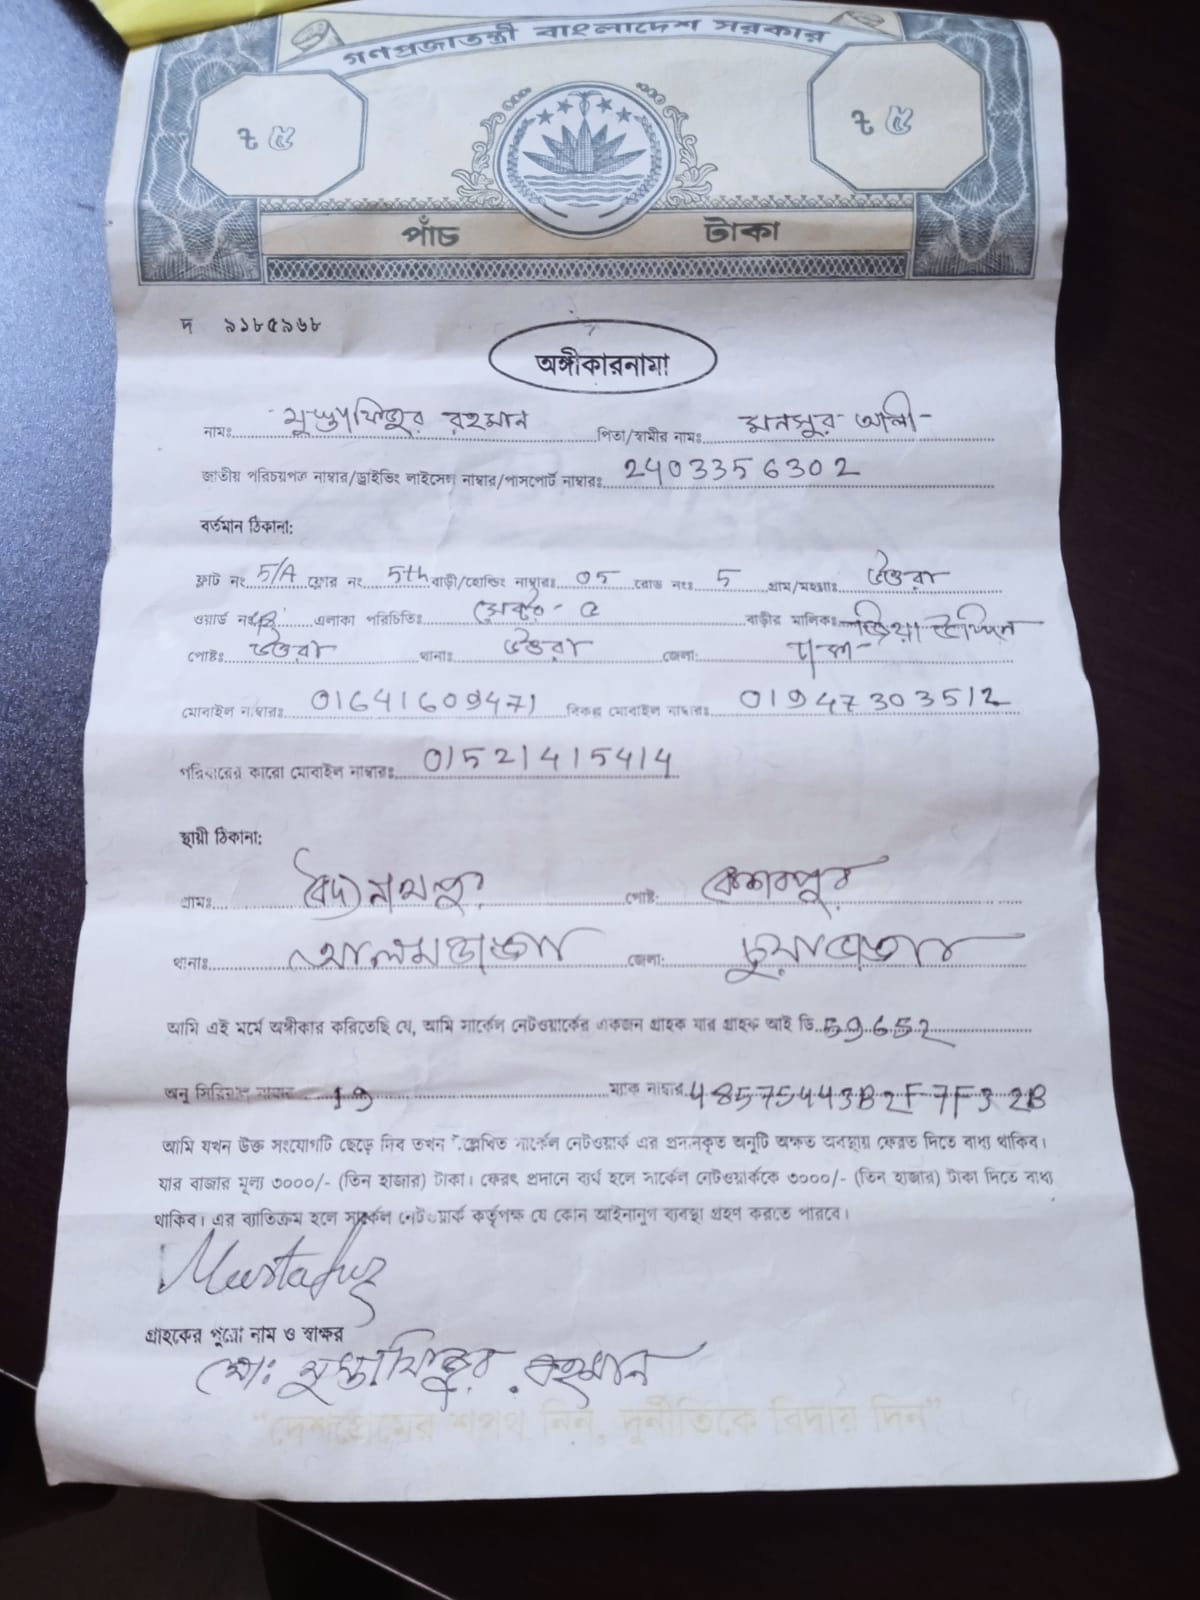 গণপ্রজাতন্ত্রী বাংলাদেশ সরকার
৳ ৫ ৳ ৫
পাঁচ টাকা
দ ৯১৮৫৯৬৮
অঙ্গীকারনামা
নামঃ মুস্তাফিজুর রহমান পিতা/স্বামীর নামঃ মনসুর আলী
জাতীয় পরিচয়পত্র নাম্বার/ড্রাইভিং লাইসেন্স নাম্বার/পাসপোর্ট নাম্বারঃ 2403356302
বর্তমান ঠিকানা:
ফ্লাট নং 5/A ফ্লোর নং 5th বাড়ী/হোল্ডিং নাম্বারঃ 05 রোড নংঃ 5 গ্রাম/মহল্লাঃ উত্তরা
ওয়ার্ড নংঃ এলাকা পরিচিতিঃ সেক্টর- ৫ বাড়ীর মালিকঃ
পোষ্টঃ উত্তরা থানাঃ উত্তরা জেলা: ঢাকা
মোবাইল নাম্বারঃ 01641609471 বিকল্প মোবাইল নাম্বারঃ 01947303512
পরিবারের কারো মোবাইল নাম্বারঃ 01521415414
স্থায়ী ঠিকানা:
গ্রামঃ বৈদ্যনাথপুর পোষ্ট: কেশবপুর
থানাঃ আলমডাঙ্গা জেলা: চুয়াডাঙ্গা
আমি এই মর্মে অঙ্গীকার করিতেছি যে, আমি সার্কেল নেটওয়ার্কের একজন গ্রাহক যার গ্রাহক আই ডি 59652
অনু সিরিয়াল নাম্বার 19 ম্যাক নাম্বার 48575443B2F7F32B
আমি যখন উক্ত সংযোগটি ছেড়ে দিব তখন উল্লেখিত সার্কেল নেটওয়ার্ক এর প্রদানকৃত অনুটি অক্ষত অবস্থায় ফেরত দিতে বাধ্য থাকিব।
যার বাজার মূল্য ৩০০০/- (তিন হাজার) টাকা। ফেরৎ প্রদানে ব্যর্থ হলে সার্কেল নেটওয়ার্ককে ৩০০০/- (তিন হাজার) টাকা দিতে বাধ্য
থাকিব। এর ব্যাতিক্রম হলে সার্কেল নেটওয়ার্ক কর্তৃপক্ষ যে কোন আইনানুগ ব্যবস্থা গ্রহণ করতে পারবে।
Mustafiz
গ্রাহকের পুরো নাম ও স্বাক্ষর
মো: মুস্তাফিজুর রহমান
“দেশপ্রেমের শপথ নিন, দুর্নীতিকে বিদায় দিন”